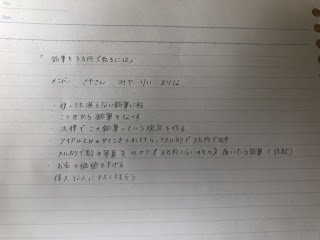 ・鉛筆を3万円で売るには。
メンバー こやさん みや りい まりな
・使っても減らない鉛筆にする
・この世から鉛筆をなくす
・法律でこの鉛筆っていう規定を作る
・アイドルとかのサインを入れてもらってメルカリで3万円で出す
・メルカリで別の写真をのせて 3万円くらいのもの 届いたら鉛筆！
・お金の価値を下げる
偉人